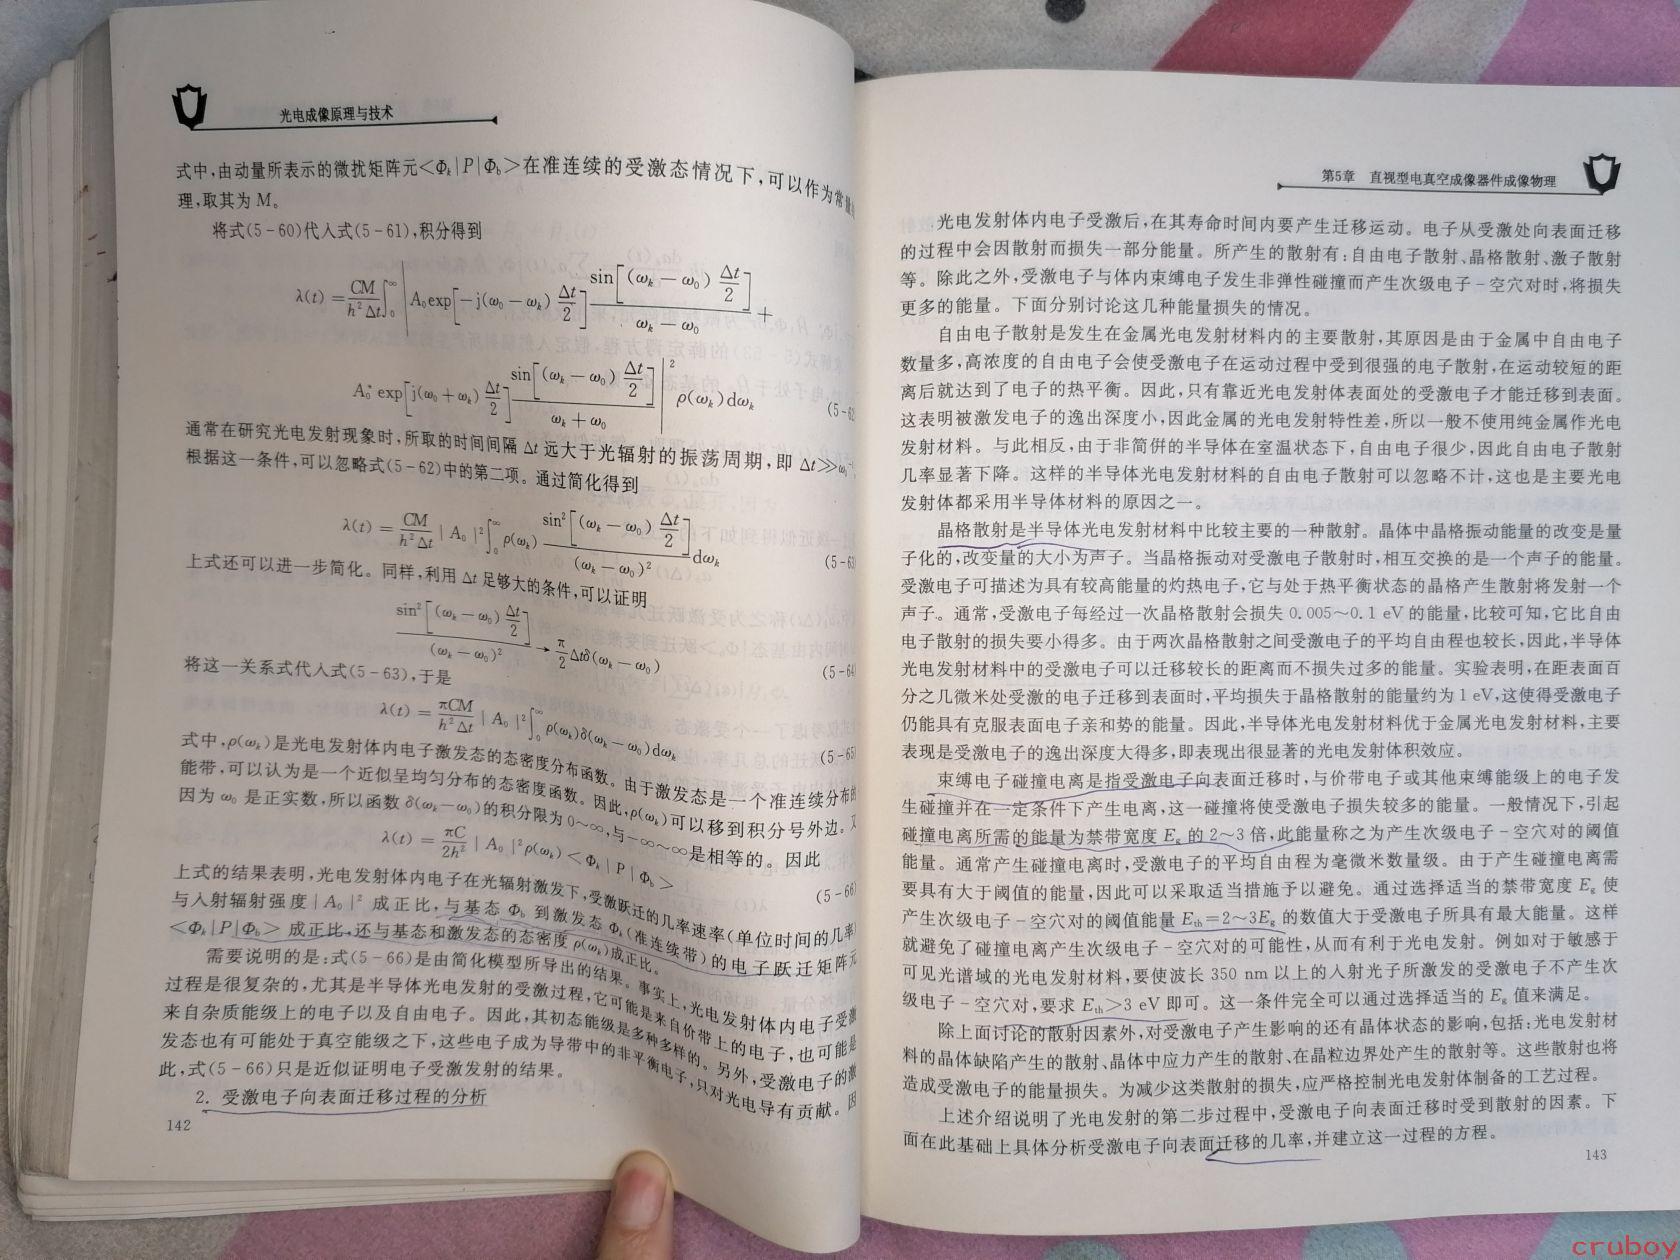 光电成像原理与技术
式中,由动量所表示的微扰矩阵元<Φₖ|P|Φb>在准连续的受激态情况下,可以作为常量
理,取其为 M。
将式(5-60)代入式(5-61),积分得到
λ(t) = CM/h²Δt ∫₀^∞ | A₀exp[-j(ω₀-ωₖ) Δt/2] sin[(ωₖ-ω₀) Δt/2]/(ωₖ-ω₀) +
A₀* exp[j(ω₀+ωₖ) Δt/2] sin[(ωₖ-ω₀) Δt/2]/(ωₖ+ω₀) |² ρ(ωₖ)dωₖ (5-62
通常在研究光电发射现象时,所取的时间间隔 Δt 远大于光辐射的振荡周期,即 Δt≫ω₀
根据这一条件,可以忽略式(5-62)中的第二项。通过简化得到
λ(t) = CM/h²Δt |A₀|² ∫₀^∞ ρ(ωₖ) sin²[(ωₖ-ω₀) Δt/2]/(ωₖ-ω₀)² dωₖ (5-63
上式还可以进一步简化。同样,利用 Δt 足够大的条件,可以证明
sin²[(ωₖ-ω₀) Δt/2]/(ωₖ-ω₀)² → π/2 Δtδ(ωₖ-ω₀) (5-64
将这一关系式代入式(5-63),于是
λ(t) = πCM/h²Δt |A₀|² ∫₀^∞ ρ(ωₖ)δ(ωₖ-ω₀)dωₖ (5-65
式中,ρ(ωₖ)是光电发射体内电子激发态的态密度分布函数。由于激发态是一个准连续分布的
能带,可以认为是一个近似呈均匀分布的态密度函数。因此,ρ(ωₖ)可以移到积分号外边。又
因为 ω₀ 是正实数,所以函数 δ(ωₖ-ω₀)的积分限为 0~∞,与-∞~∞是相等的。因此
λ(t) = πC/2h² |A₀|²ρ(ωₖ)<Φₖ|P|Φb> (5-66
上式的结果表明,光电发射体内电子在光辐射激发下,受激跃迁的几率速率(单位时间的几率)
与入射辐射强度|A₀|² 成正比,与基态 Φb 到激发态 Φₖ(准连续带)的电子跃迁矩阵元
<Φₖ|P|Φb> 成正比,还与基态和激发态的态密度 ρ(ωₖ)成正比。
需要说明的是:式(5-66)是由简化模型所导出的结果。事实上,光电发射体内电子受激
过程是很复杂的,尤其是半导体光电发射的受激过程,它可能是来自价带上的电子,也可能是
来自杂质能级上的电子以及自由电子。因此,其初态能级是多种多样的。另外,受激电子的激
发态也有可能处于真空能级之下,这些电子成为导带中的非平衡电子,只对光电导有贡献。因
此,式(5-66)只是近似证明电子受激发射的结果。
2. 受激电子向表面迁移过程的分析
142
第5章 直视型电真空成像器件成像物理
光电发射体内电子受激后,在其寿命时间内要产生迁移运动。电子从受激处向表面迁移
的过程中会因散射而损失一部分能量。所产生的散射有:自由电子散射、晶格散射、激子散射
等。除此之外,受激电子与体内束缚电子发生非弹性碰撞而产生次级电子-空穴对时,将损失
更多的能量。下面分别讨论这几种能量损失的情况。
自由电子散射是发生在金属光电发射材料内的主要散射,其原因是由于金属中自由电子
数量多,高浓度的自由电子会使受激电子在运动过程中受到很强的电子散射,在运动较短的距
离后就达到了电子的热平衡。因此,只有靠近光电发射体表面处的受激电子才能迁移到表面。
这表明被激发电子的逸出深度小,因此金属的光电发射特性差,所以一般不使用纯金属作光电
发射材料。与此相反,由于非简併的半导体在室温状态下,自由电子很少,因此自由电子散射
几率显著下降。这样的半导体光电发射材料的自由电子散射可以忽略不计,这也是主要光电
发射体都采用半导体材料的原因之一。
晶格散射是半导体光电发射材料中比较主要的一种散射。晶体中晶格振动能量的改变是量
子化的,改变量的大小为声子。当晶格振动对受激电子散射时,相互交换的是一个声子的能量。
受激电子可描述为具有较高能量的灼热电子,它与处于热平衡状态的晶格产生散射将发射一个
声子。通常,受激电子每经过一次晶格散射会损失 0.005~0.1 eV 的能量,比较可知,它比自由
电子散射的损失要小得多。由于两次晶格散射之间受激电子的平均自由程也较长,因此,半导体
光电发射材料中的受激电子可以迁移较长的距离而不损失过多的能量。实验表明,在距表面百
分之几微米处受激的电子迁移到表面时,平均损失于晶格散射的能量约为 1 eV,这使得受激电子
仍能具有克服表面电子亲和势的能量。因此,半导体光电发射材料优于金属光电发射材料,主要
表现是受激电子的逸出深度大得多,即表现出很显著的光电发射体积效应。
束缚电子碰撞电离是指受激电子向表面迁移时,与价带电子或其他束缚能级上的电子发
生碰撞并在一定条件下产生电离,这一碰撞将使受激电子损失较多的能量。一般情况下,引起
碰撞电离所需的能量为禁带宽度 Eg 的 2~3 倍,此能量称之为产生次级电子-空穴对的阈值
能量。通常产生碰撞电离时,受激电子的平均自由程为毫微米数量级。由于产生碰撞电离需
要具有大于阈值的能量,因此可以采取适当措施予以避免。通过选择适当的禁带宽度 Eg 使
产生次级电子-空穴对的阈值能量 Eth=2~3Eg 的数值大于受激电子所具有最大能量。这样
就避免了碰撞电离产生次级电子-空穴对的可能性,从而有利于光电发射。例如对于敏感于
可见光谱域的光电发射材料,要使波长 350 nm 以上的入射光子所激发的受激电子不产生次
级电子-空穴对,要求 Eth>3 eV 即可。这一条件完全可以通过选择适当的 Eg 值来满足。
除上面讨论的散射因素外,对受激电子产生影响的还有晶体状态的影响,包括:光电发射材
料的晶体缺陷产生的散射、晶体中应力产生的散射、在晶粒边界处产生的散射等。这些散射也将
造成受激电子的能量损失。为减少这类散射的损失,应严格控制光电发射体制备的工艺过程。
上述介绍说明了光电发射的第二步过程中,受激电子向表面迁移时受到散射的因素。下
面在此基础上具体分析受激电子向表面迁移的几率,并建立这一过程的方程。
143
cruboy